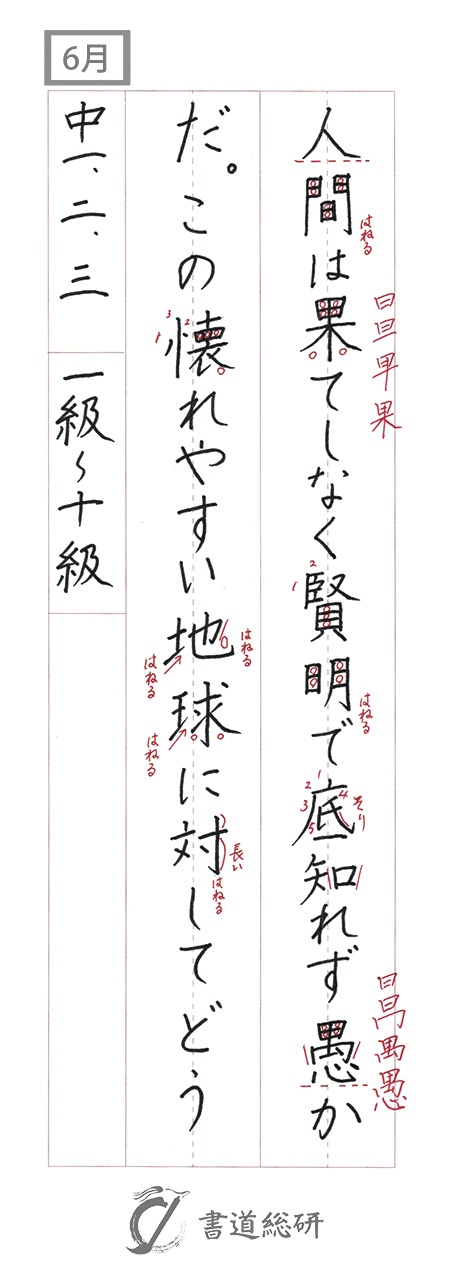 6月
人間は果てしなく賢明で底知れず愚か
だ。この懐れやすい地球に対してどう
中一、二、三 一級〜十級
はねる
日旦早果
はねる
そり
はねる
はねる
はねる
長い
はねる
書道総研